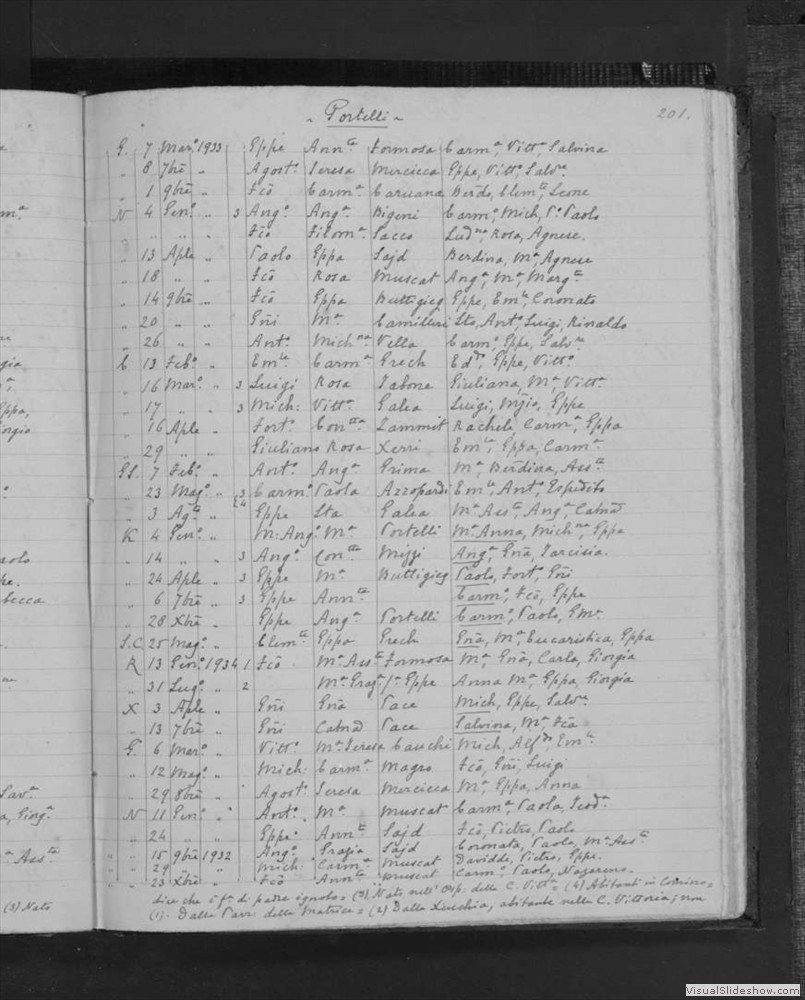 201.
Portelli
G. 7 Mar.º 1933 Eppe Ann.ta Formosa Carm.ª, Vitt.ª Salvina
" 8 7bre " Agost.º Teresa Mercieca Eppa, Vitt.º Salv.re
" 1 9bre " Fcõ Carm.ª Caruana Berdo, Clem.te Leone
N 4 Gen.º " 3 Ang.º Ang.ª Bigeni Carm.º, Mich, Paolo
" " " " Fcõ Filom.ª Sacco Lud.na, Rosa, Agnese.
" 13 Aple " Paolo Eppa Sajd Berdina, M.ª, Agnese
" 18 " " Fcõ Rosa Muscat Ang.ª, M.ª, Marg.ta
" 14 9bre " Fcõ Eppa Buttigieg Eppe, Em.le, Coronato
" 20 " " Gñi M.ª Camilleri Sto, Ant.º, Luigi, Rinaldo
" 26 " " Ant.º Mich.na Vella Carm.º, Eppe, Salv.re
C 13 Feb.º " Em.le Carm.ª Grech Ed.do, Eppe, Vitt.º
" 16 Mar.º " 3 Luigi Rosa Tabone Giuliana, M.ª, Vitt.ª
" 17 " " 3 Mich: Vitt.ª Galea Luigi, Eppe
" 16 Aple " Fort.º Con.tta Zammit Rachele, Carm.ª, Eppa
" 29 " " Giuliano Rosa Xerri Em.la, Eppa, Carm.ª
Gh. 7 Feb.º " Ant.º Ang.ª Grima M.ª Berdina, Ass.ta
" 23 Mag.º " 3 Carm.º Paola Azzopardi Em.le, Ant.º, Espedito
" 3 Ag.to " 4 Eppe Sta Galea M.ª Ass.ta, Ang.ª, Catna
K 4 Gen.º " M. Ang.º M.ª Portelli M.ª Anna, Mich.na, Eppa
" 14 " " 3 Ang.º Con.tta Mizzi Ang.ª, Gña, Tarcisia.
" 24 Aple " 3 Eppe M.ª Buttigieg Paolo, Fort.º, Gñi
" 6 7bre " 3 Eppe Ann.ta Carm.º, Fcõ, Eppe
" 28 Xbre " Eppe Ang.ª Portelli Carm.º, Paolo,
S.C. 25 Mag.º " Clem.te Eppa Grech Gña, M.ª Eucaristica, Eppa
K 13 Gen.º 1934 1 Fcõ M.ª Ass.ta Formosa M.ª, Gña, Carla, Giorgia
" 31 Lug.º " 2 M.ª Graz.ª f.ª Eppe Anna M.ª, Eppa, Giorgia
X 3 Aple " Gñi Gña Pace Mich, Eppe, Salv.re
" 13 7bre " Gñi Catna Pace Salvina, M.ª, Fcã
G. 6 Mar.º " Vitt.º M.ª Teresa Cauchi Mich, Alf.do, Em.le
" 12 Mag.º " Mich: Carm.ª Magro Fcõ, Gñi, Luigi
" 29 8bre " Agost.º Teresa Mercieca M.ª, Eppa, Anna
N 11 Gen.º " Ant.º M.ª Muscat Carm.ª, Paola,
" 24 " " Eppe. Ann.ta Sajd Fcõ, Pietro, Paolo
" 15 9bre 1932 Ang.º Grazia Sajd Coronata, Paola, M.ª Ass.ta
" 29 " " Mich: Carm.ª Muscat Davidde, Pietro, Eppe.
" 23 Xbre " Fcõ Ann.ta Muscat Carm.º Paolo, Nazareno
dice che è f.ª di padre ignoto = (3) Nato nell' Osp. della C. Vitt.ª = (4) Abitanti in Comino =
(1). Dalla Parr. della Matrice = (2) Dalla Xucchia, abitante nella C. Vittoria; non
(3) Nato
VisualSlideshow.com